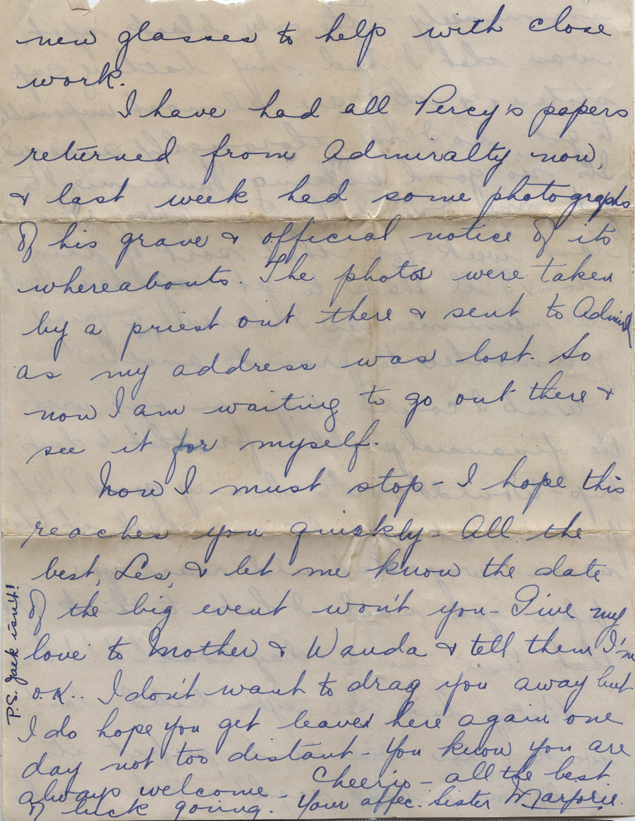 new glasses to help with close
work.
I have had all Percy's papers
returned from Admiralty now,
& last week had some photographs
of his grave & official notice of its
whereabouts. The photos were taken
by a priest out there & sent to
as my address was lost. So
now I am waiting to go out there &
see it for myself.
Now I must stop - I hope this
reaches you quickly - All the
best, Les, & let me know the date
of the big event won't you - Give my
love to Mother & Wanda & tell them I'm
O.K.. I don't want to drag you away but
I do hope you get leave here again one
day not too distant - You know you are
always welcome - Cheerio - all the best
of luck going. Your affec. sister Marjorie.
P.S. Jack isn't!